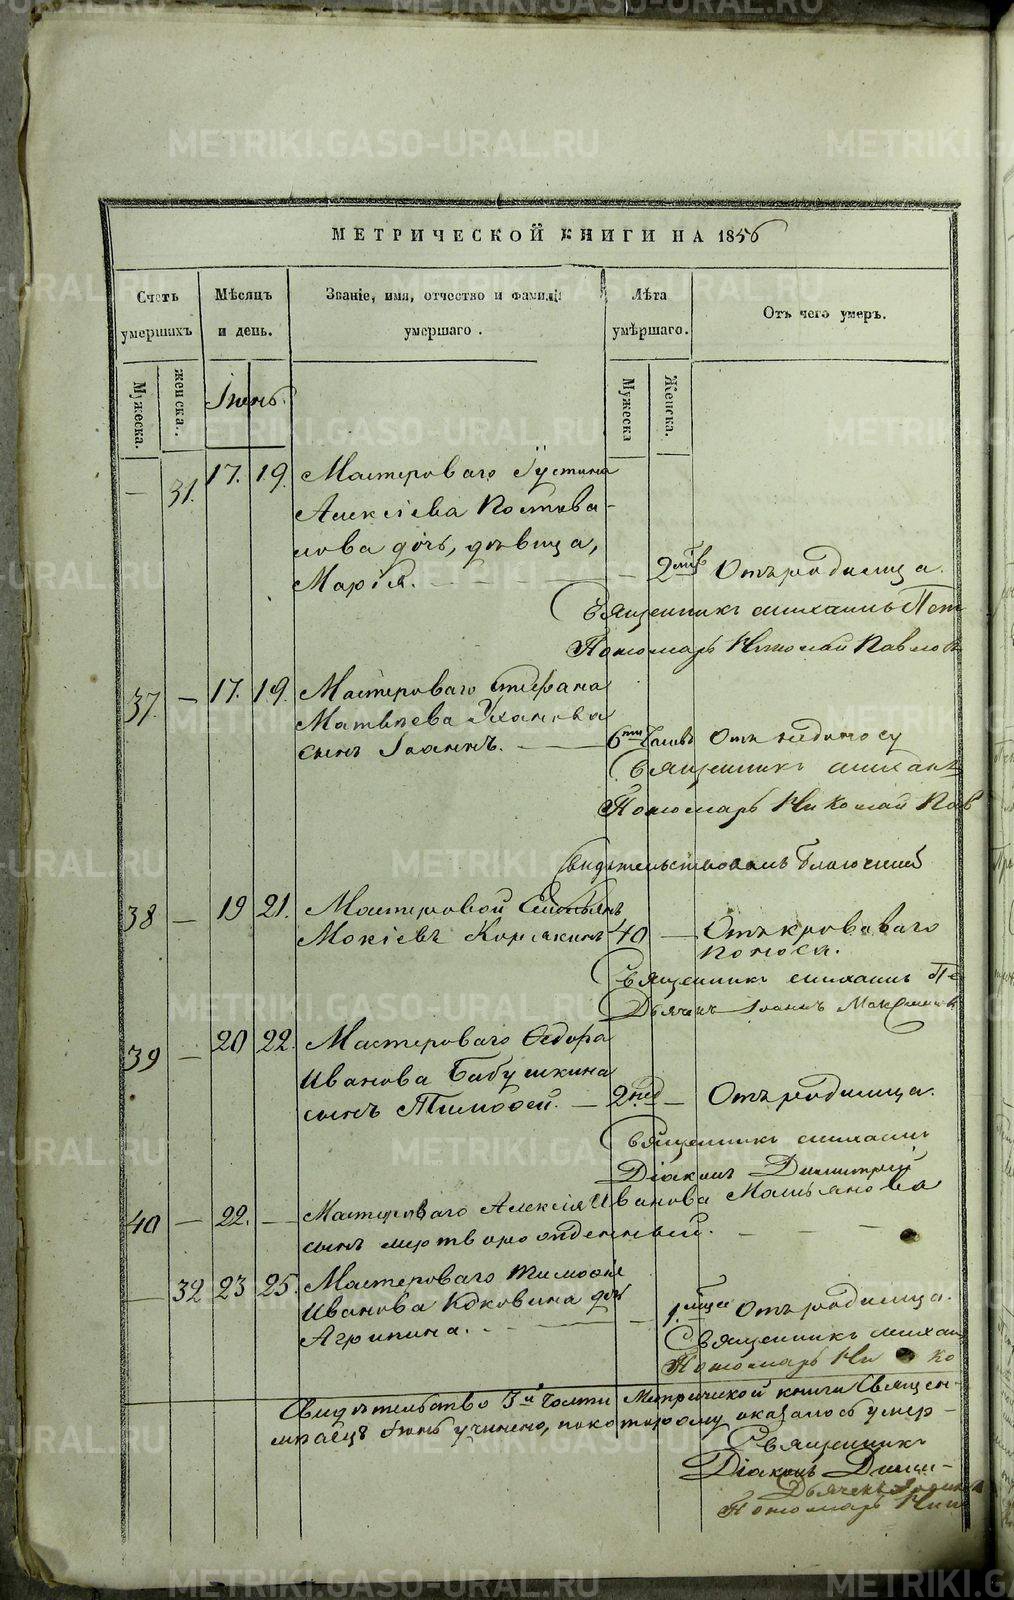 METRIKI.GASO-URAL.RU
МЕТРИЧЕСКОЙ КНИГИ НА 1856
Счетъ умершихъ
Мѣсяцъ и день.
Званіе, имя, отчество и фамилія умершаго.
Лѣта умѣршаго.
Отъ чего умеръ.
Мужеска.
женска.
Іюнь.
Мужеска
Женска.
— 31. 17. 19. Мастероваго Іустина
Алексіева Постова-
лова дочь, дѣвица,
Марія. — 2 Отъ родимца.
Священникъ Михаилъ
Пономарь Николай Павлов
37. — 17. 19. Мастероваго Стефана
Матвѣева Уханова
сынъ Іоаннъ. — 6ти часовъ Отъ недоносу
Священникъ Михаилъ
Пономарь Николай Пав
Свидетельствовалъ Благочинный
38 — 19 21. Мастеровой Емельянъ
Мокіевъ Корякинъ 40 — Отъ кроваваго
поноса.
Священникъ Михаилъ Пе
Дьячекъ Іоаннъ Максимов
39 — 20 22. Мастероваго Ѳедора
Иванова Бабушкина
сынъ Тимоѳей. — 2 нед — Отъ родимца.
Священникъ Михаилъ
Діаконъ Димитрій
40 — 22. — Мастероваго Алексія Иванова
сынъ мертворожденный. — —
— 32 23 25. Мастероваго Тимоѳея
Иванова Коковина дочь
Агрипина. — 1. Отъ родимца.
Священникъ Михаи
Пономарь Нико
Свидѣтельство 3й части Метрической книги Священ-
мѣсяцъ Іюнь учинено, по которому оказалось умер-
Священникъ
Діаконъ Дими-
Дьячекъ Іоаннъ
Пономарь Ник